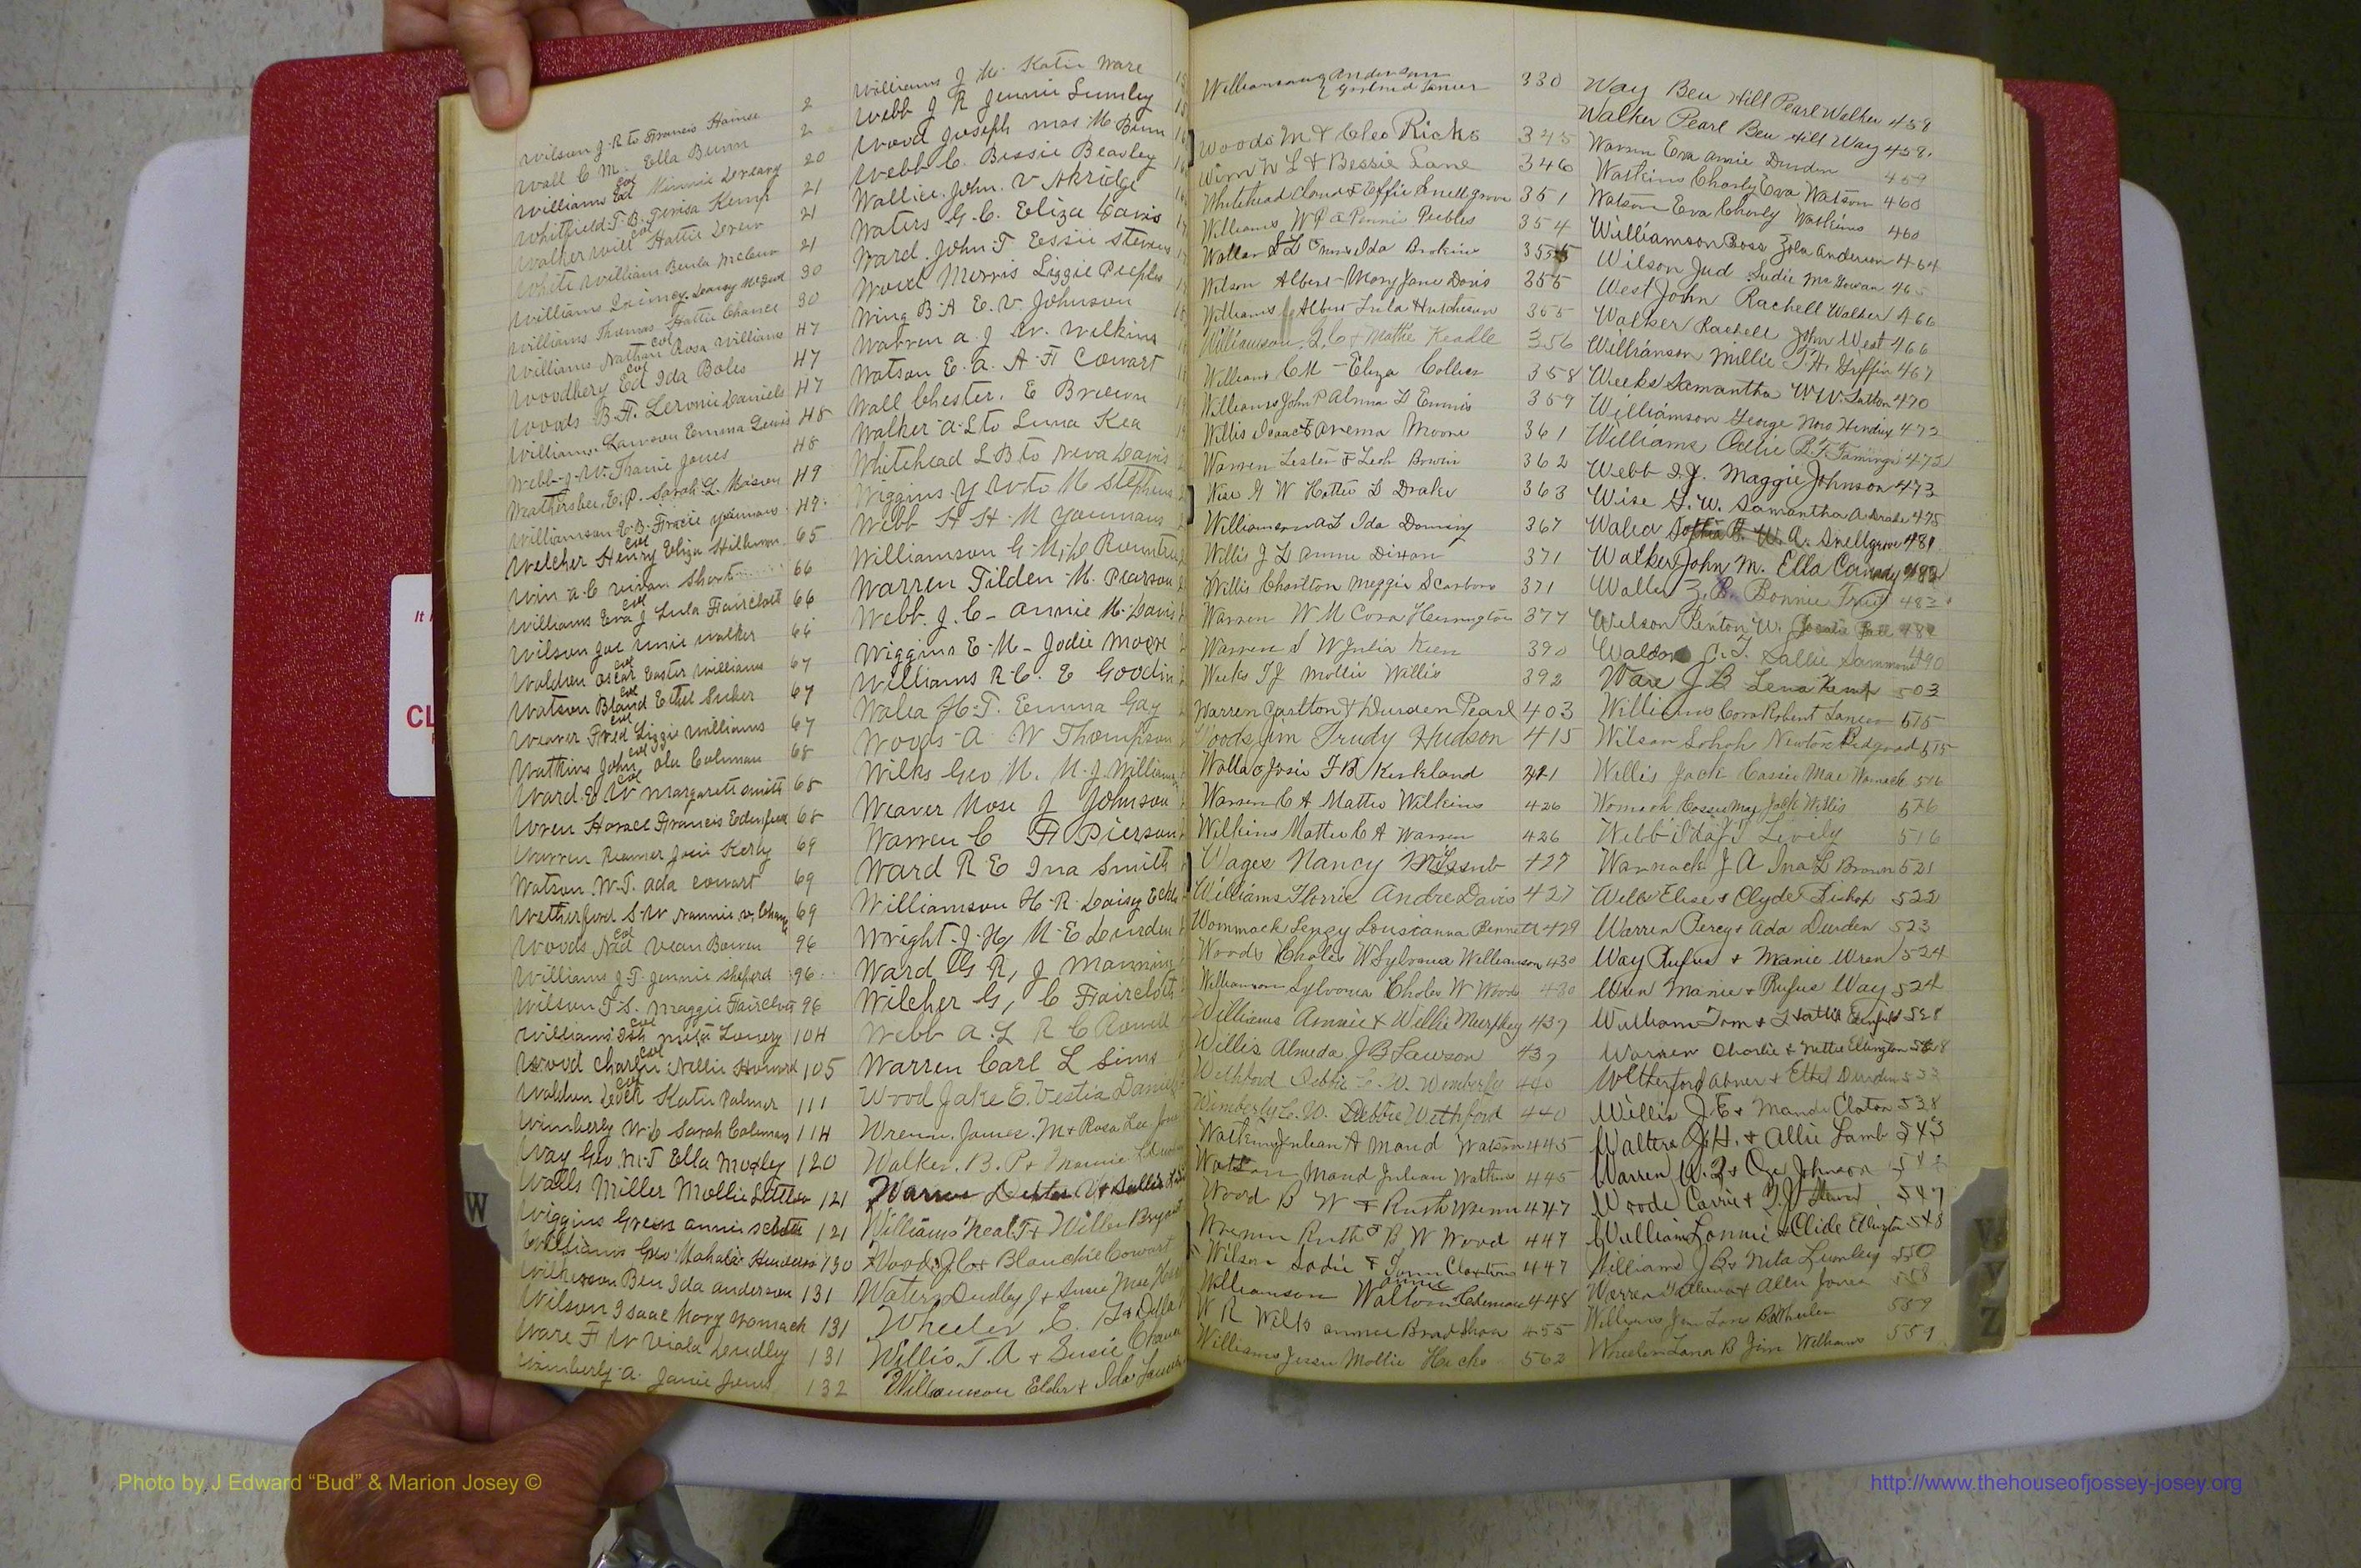 Wilson J. R. to Francis
Wall C. M. Ella Bunn 2
Williams Ed col Minnie 2
Whitfield T. B. Teresa Kemp 20
Walker Will col Hattie Drew 21
White William Beula McLeun 21
Williams Quincy 21
Williams Thomas Hattie Chance 30
Williams Nathan col Rosa Williams 30
Woodbery Ed col Ida Boles 47
Woods B. F. Leronie Daniels 47
Williams Lawson Emma Lewis 47
Webb J. W. Thanie Jones 48
Weathersbee, E. P. Sarah L. Mason 48
Williamson E. B. Tracie Youmans 49
Welcher Henry col Eliza Hillman 49
Win A. C. Vivian Short 65
Williams Eva J col Lula Faircloth 66
Wilson Joe Unie Walker 66
Walden Oscar col Easter Williams 66
Watson Bland col Ethel Tucker 67
Weaver Fred col Lizzie Williams 67
Watkins John col Ola Coleman 67
Ward E. W col Margarett Smith 68
Wren Horace Francis Edenfield 68
Warren Reamer Josie Kersy 68
Watson W. T. Ada Cowart 69
Wetherford S. W Nannie V. 69
Woods Ned col Vean Bowen 69
Williams J. T. Jennie Sheperd 96
Wilson T. S. Maggie Faircloth 96
Williams Ish col Meta Lowery 96
Wood Charlie col Nellie Howard 104
Walden col Katie Palmer 105
Wimberly W. C Sarah Coleman 111
Way Geo. M. T Ella Mosley 114
Walls Miller Mollie 120
Wiggins Green Annie Scott 121
Williams Geo Mahalie 121
Wilkerson Ben Ida Anderson 130
Wilson Isaac Mary Womack 131
Ware F W Viola Dudley 131
Wimberly A. Janie Jones 131
132
Williams J M. Katie Ware
Webb J R Jennie Lumley
Wood Joseph Mrs M Bunn
Webb C. Bessie Beasley
Wallice John. V Akridge
Waters G. C. Eliza Davis
Ward. John T Essie Stevens
Wood Morris Lizzie Peeples
Wing B. A E. V. Johnson
Warren A. J W. Wilkins
Watson E. A. A. F Cowart
Wall Chester. E Brown
Walker A. L to Luna Kea
Whitehead L B to Neva Davis
Wiggins Y W to M Stephens
Webb H. H. M Youmans
Williamson G. M, Rountree
Warren Tilden M. Pearson
Webb. J. C - Annie M. Davis
Wiggins E. M - Jodie Moore
Williams R C. E Goodin
Walea H. T. Emma Gay
Woods A W Thompson
Wilks Geo M. M. J. Williams
Weaver Mose J Johnson
Warren C F Pierson
Ward R E Ina Smith
Williamson H. R. Daisy
Wright J. H M. E Durden
Ward G R, J Manning
Wilcher G, C Faircloth
Webb A. L R C Rowell
Warren Carl L Sims
Wood Jake E. Vestia Daniels
Wrenn, James. M + Rosa Lee
Walker. B. P + Mamie
Warren Dexter V + Sallie
Williams Neal T + Willie Bryant
Wood J. C + Blanchie Cowart
Waters Dudley J + Susie Mae
Wheeler C. L + Della
Willis T. A + Susie
Williamson Elder + Ida
Williamson Anderson 330
Gertrud Tanner
Woods M & Cleo Ricks 345
Winn W L & Bessie Lane 346
Whitehead Cloud & Effie Snellgrove 351
Williams W P & Pennie Peebles 354
Waller S L & Mrs Ida Brokins 355
Wilson Albert - Mary Jane Davis 355
Williams Albert - Lula Hutcheson 355
Williamson Q. C & Mattie Keadle 356
Williams C M - Eliza Collins 358
Williams John P Alma L Ennis 359
Willis Isaac & Arema Moore 361
Warren Lester & Leoh Bowin 362
Wise G W Hattie L Drake 363
Williamson A L Ida Doming 367
Willis J L Annie Dixon 371
Willis Charlton Maggie Scarboro 371
Warren W M Cora Herrington 377
Warren S W Julia Keen 390
Weeks T J Mollie Willis 392
Warren Carlton & Durden Pearl 403
Woods Jim Trudy Hudson 415
Wallace Josie F B Kirkland 421
Warren C A Mattie Wilkins 426
Wilkins Mattie C A Warren 426
Wages Nancy 427
Williams Florrie Andre Davis 427
Wommack Lengy Lousianna Bennett 429
Woods Choles W Sylvania Williamson 430
Williamson Sylvania Choles W Woods 430
Williams Annie & Willie Murphey 437
Willis Almeda J B Lawson 437
Wethford Debbie C. W. Wimberly 440
Wimberly C. W. Debbie Wethford 440
Watkins Julian A Maud Watson 445
Watson Maud Julian Watkins 445
Wood B W & Ruth Wrenn 447
Wrenn Ruth & B W Wood 447
Wilson Sadie & Tom Claxton 447
Williamson Walton Annie Coleman 448
W R Wilks Annie Bradshaw 455
Williams Jesse Mollie Hicks 562
Way Ben Hill Pearl Walker 459
Walker Pearl Ben Hill Way 459.
Warren Eva Annie Durden 459
Watkins Charly Eva Watson 460
Watson Eva Charly Watkins 460
Williamson Ross Zola Anderson 464
Wilson Jud Sudie McGowan 46
West John Rachell Walker 466
Walker Rachell John West 466
Williamson Millie T. H. Griffin 467
Weeks Samantha W W. Sutton 470
Williamson George Nora Hendrix 472
Williams Callie B. F. 472
Webb I. J. Maggie Johnson 473
Wise G. W. Samantha A Drake 475
Walea W. A. Snellgrove 481
Walker John M. Ella Canady 482
Waller Z. B. Bonnie 483
Welson Penton W. 486
Waldon C. T. Sallie Sammons 490
Ware J B Lena Kemp 503
Williams Cora Robert Lanier 515
Wilson Newton Bidgood 515
Willis Jack Cassie Mae Womack 516
Womack Cassie May Jack Willis 516
Webb Ida J T Lively 516
Warnock J A Ina L Brown 521
Webb Elise & Clyde Bishop 522
Warren Percy & Ada Durden 523
Way Rufus + Manie Wren 524
Wren Manie + Rufus Way 524
William Tom & Hattie Edenfield 528
Warren Charlie & Nettie Ellington 528
Wetherford Abner + Ethel Durden 533
Willis J. E + Mande Claton 538
Walters J. H. + Allie Lamb 543
Warren W. Z + Johnson
Woods Carrie + 547
William Lonnie + Clide Ellington 548
Williams J B + Neta Lumley 550
Warren + Allie Jones 558
Williams Jim Lana B Wheelen 559
Wheelen Lana B Jim Williams 559
W
W
Y
Z
It
CL
Photo by J Edward “Bud” & Marion Josey ©
http://www.thehouseofjossey-josey.org